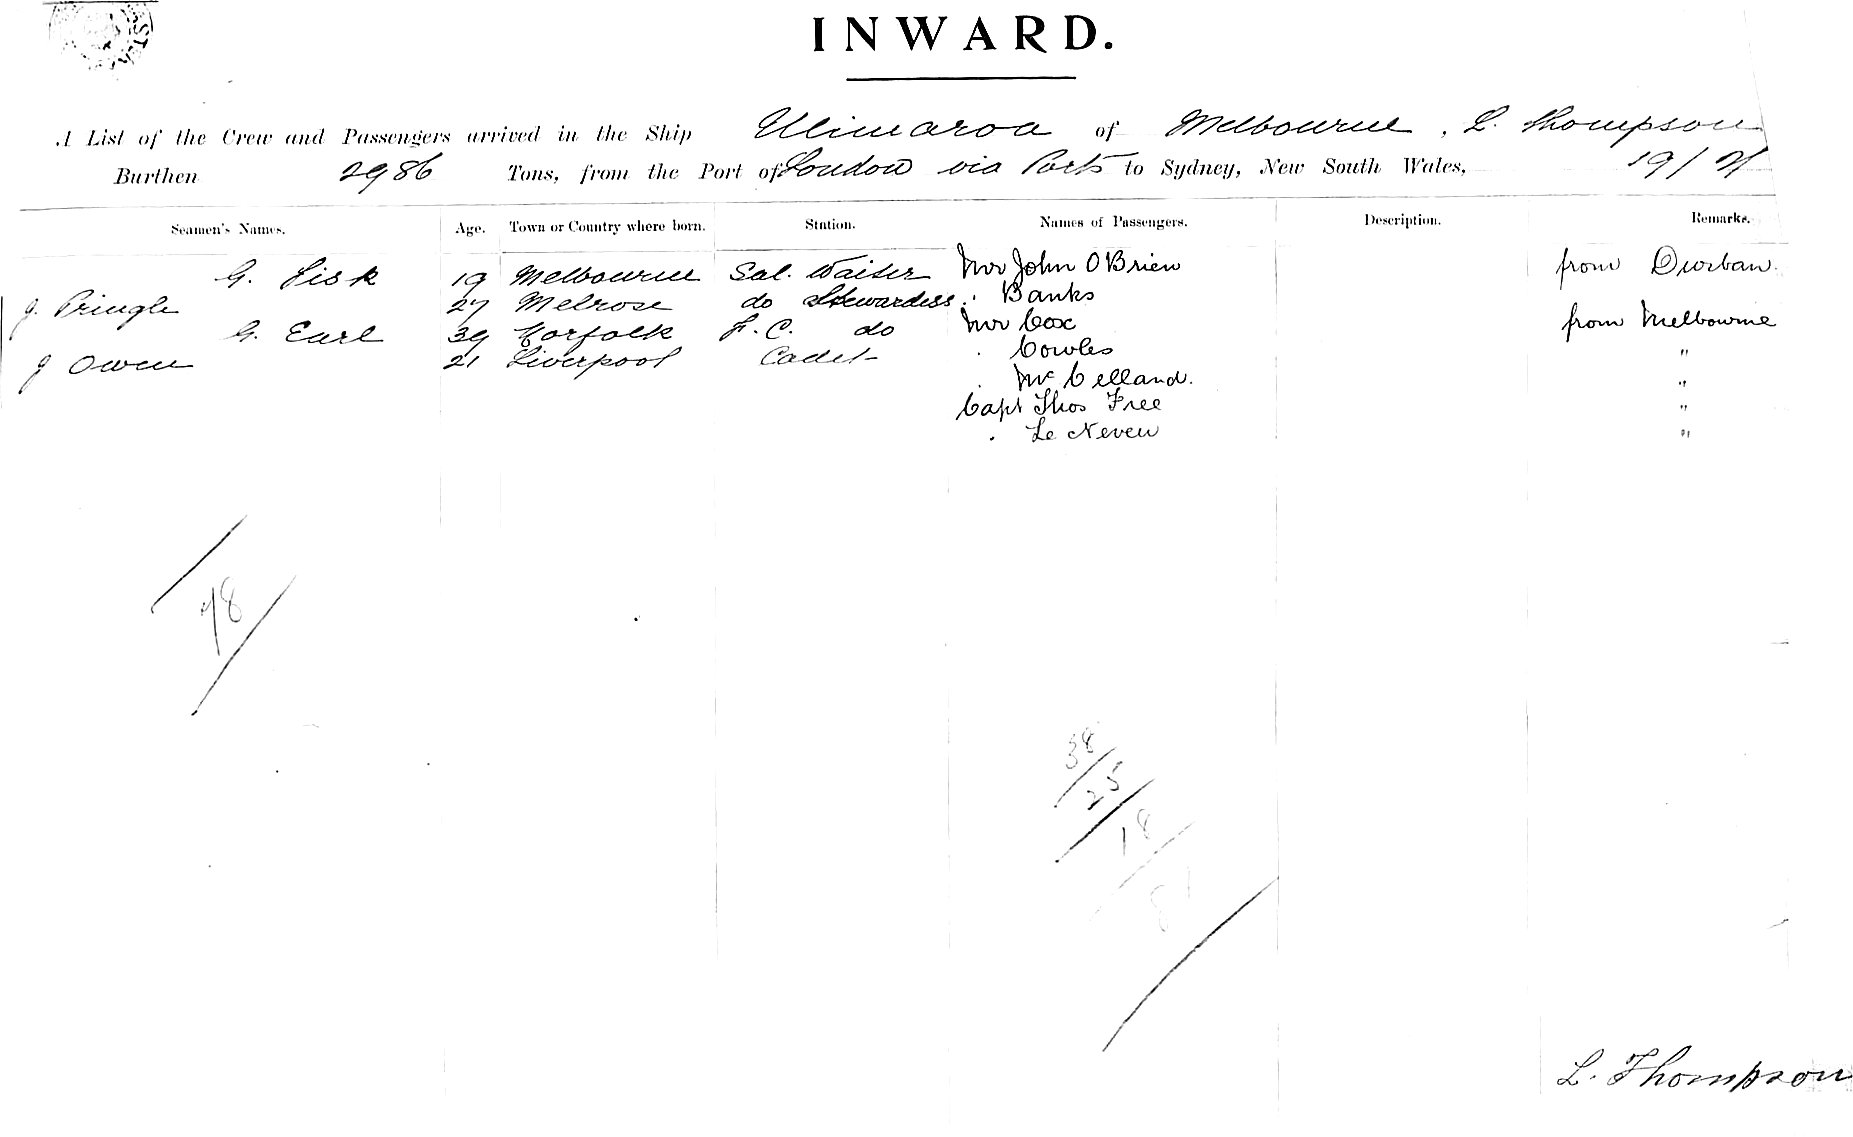 INWARD.
A List of the Crew and Passengers arrived in the Ship Ulimaroa of Melbourne, L. Thompson
Burthen 2986 Tons, from the Port of London via Ports to Sydney, New South Wales, 19/
Seamen's Names. Age. Town or Country where born. Station. Names of Passengers. Description. Remarks.
G. Fisk 19 Melbourne Sal. Waiter Mr John O'Brien from Durban.
J. Pringle 27 Melrose do Stewardess " Banks
G. Earl 39 Norfolk F. C. do Mr Cox from Melbourne
J Owen 21 Liverpool Cadet " Cowles "
" Mc Celland. "
Capt Thos Free "
" Le Neveu "
78
38
25
18
L. Thompson